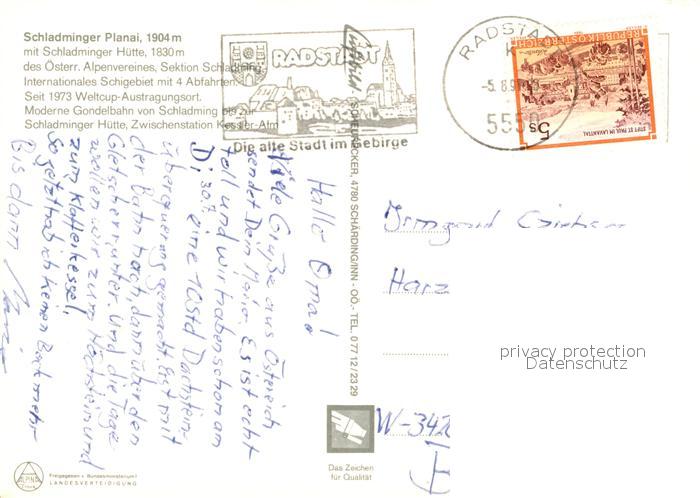 Schladminger Planai, 1904 m
mit Schladminger Hütte, 1830 m
des Österr. Alpenvereines, Sektion Schladming
Internationales Schigebiet mit 4 Abfahrten.
Seit 1973 Weltcup-Austragungsort.
Moderne Gondelbahn von Schladming bis zur
Schladminger Hütte, Zwischenstation Kessler-Alm
RADSTADT
Die alte Stadt im Gebirge
Luftpost
RADSTADT
-5. 8. 9
5550
REPUBLIK ÖSTERREICH
5s
STIFT ST. PAUL IM LAVANTTAL
4780 SCHÄRDING/INN - OÖ. - TEL. 0 77 12 / 23 29
Hallo Oma!
Viele Grüße aus Östereich
sendet Dein Mario. Es ist echt
toll und wir haben schon am
Di, 30.7. eine 10 Std Dachstein-
überquerung gemacht. Erst mit
der Bahn hoch, dann über den
Gletscher runter. Und die Tage
wollen wir zum Höchstein und
zum Klafferkessel.
So jetzt hab ich keinen Bock mehr
Bis dann Mario
Irmgard
Harz
W-342
privacy protection
Datenschutz
Das Zeichen
für Qualität
ALPINA
Freigegeben v. Bundesministerium f.
LANDESVERTEIDIGUNG